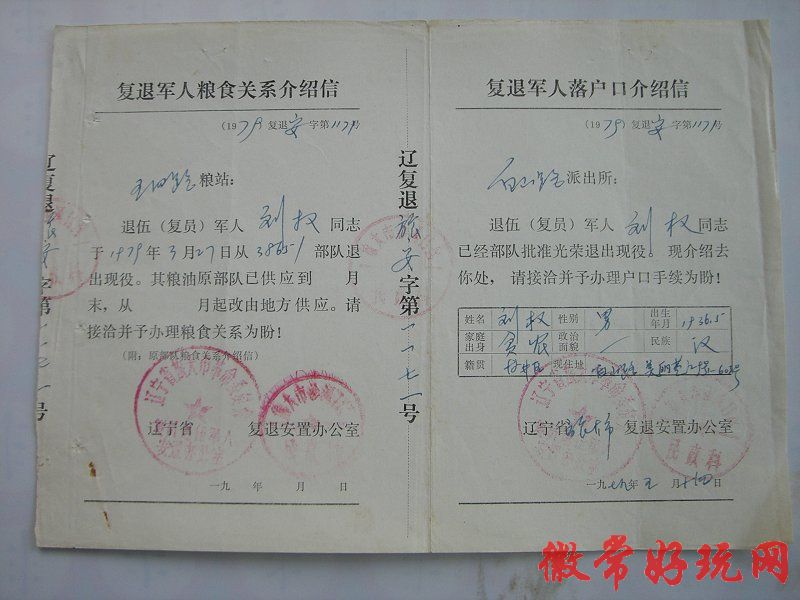 复退军人粮食关系介绍信
(1979)复退安字第1171号
粮站:
退伍(复员)军人 刘权 同志
于1979年3月27日从38651部队退
出现役。其粮油原部队已供应到 月
末,从 月起改由地方供应。请
接洽并予办理粮食关系为盼!
(附:原部队粮食关系介绍信)
辽宁省 复退安置办公室
一九 年 月 日
辽复退旅安字第一一七一号
复退军人落户口介绍信
(1979)复退安字第1171号
派出所:
退伍(复员)军人 刘权 同志
已经部队批准光荣退出现役。现介绍去
你处,请接洽并予办理户口手续为盼!
姓名 刘权 性别 男 出生年月 1936.5
家庭出身 贫农 政治面貌 民族 汉
籍贯 现住地
辽宁省 旅大市 复退安置办公室
一九七九年五月十四日
徽常好玩网